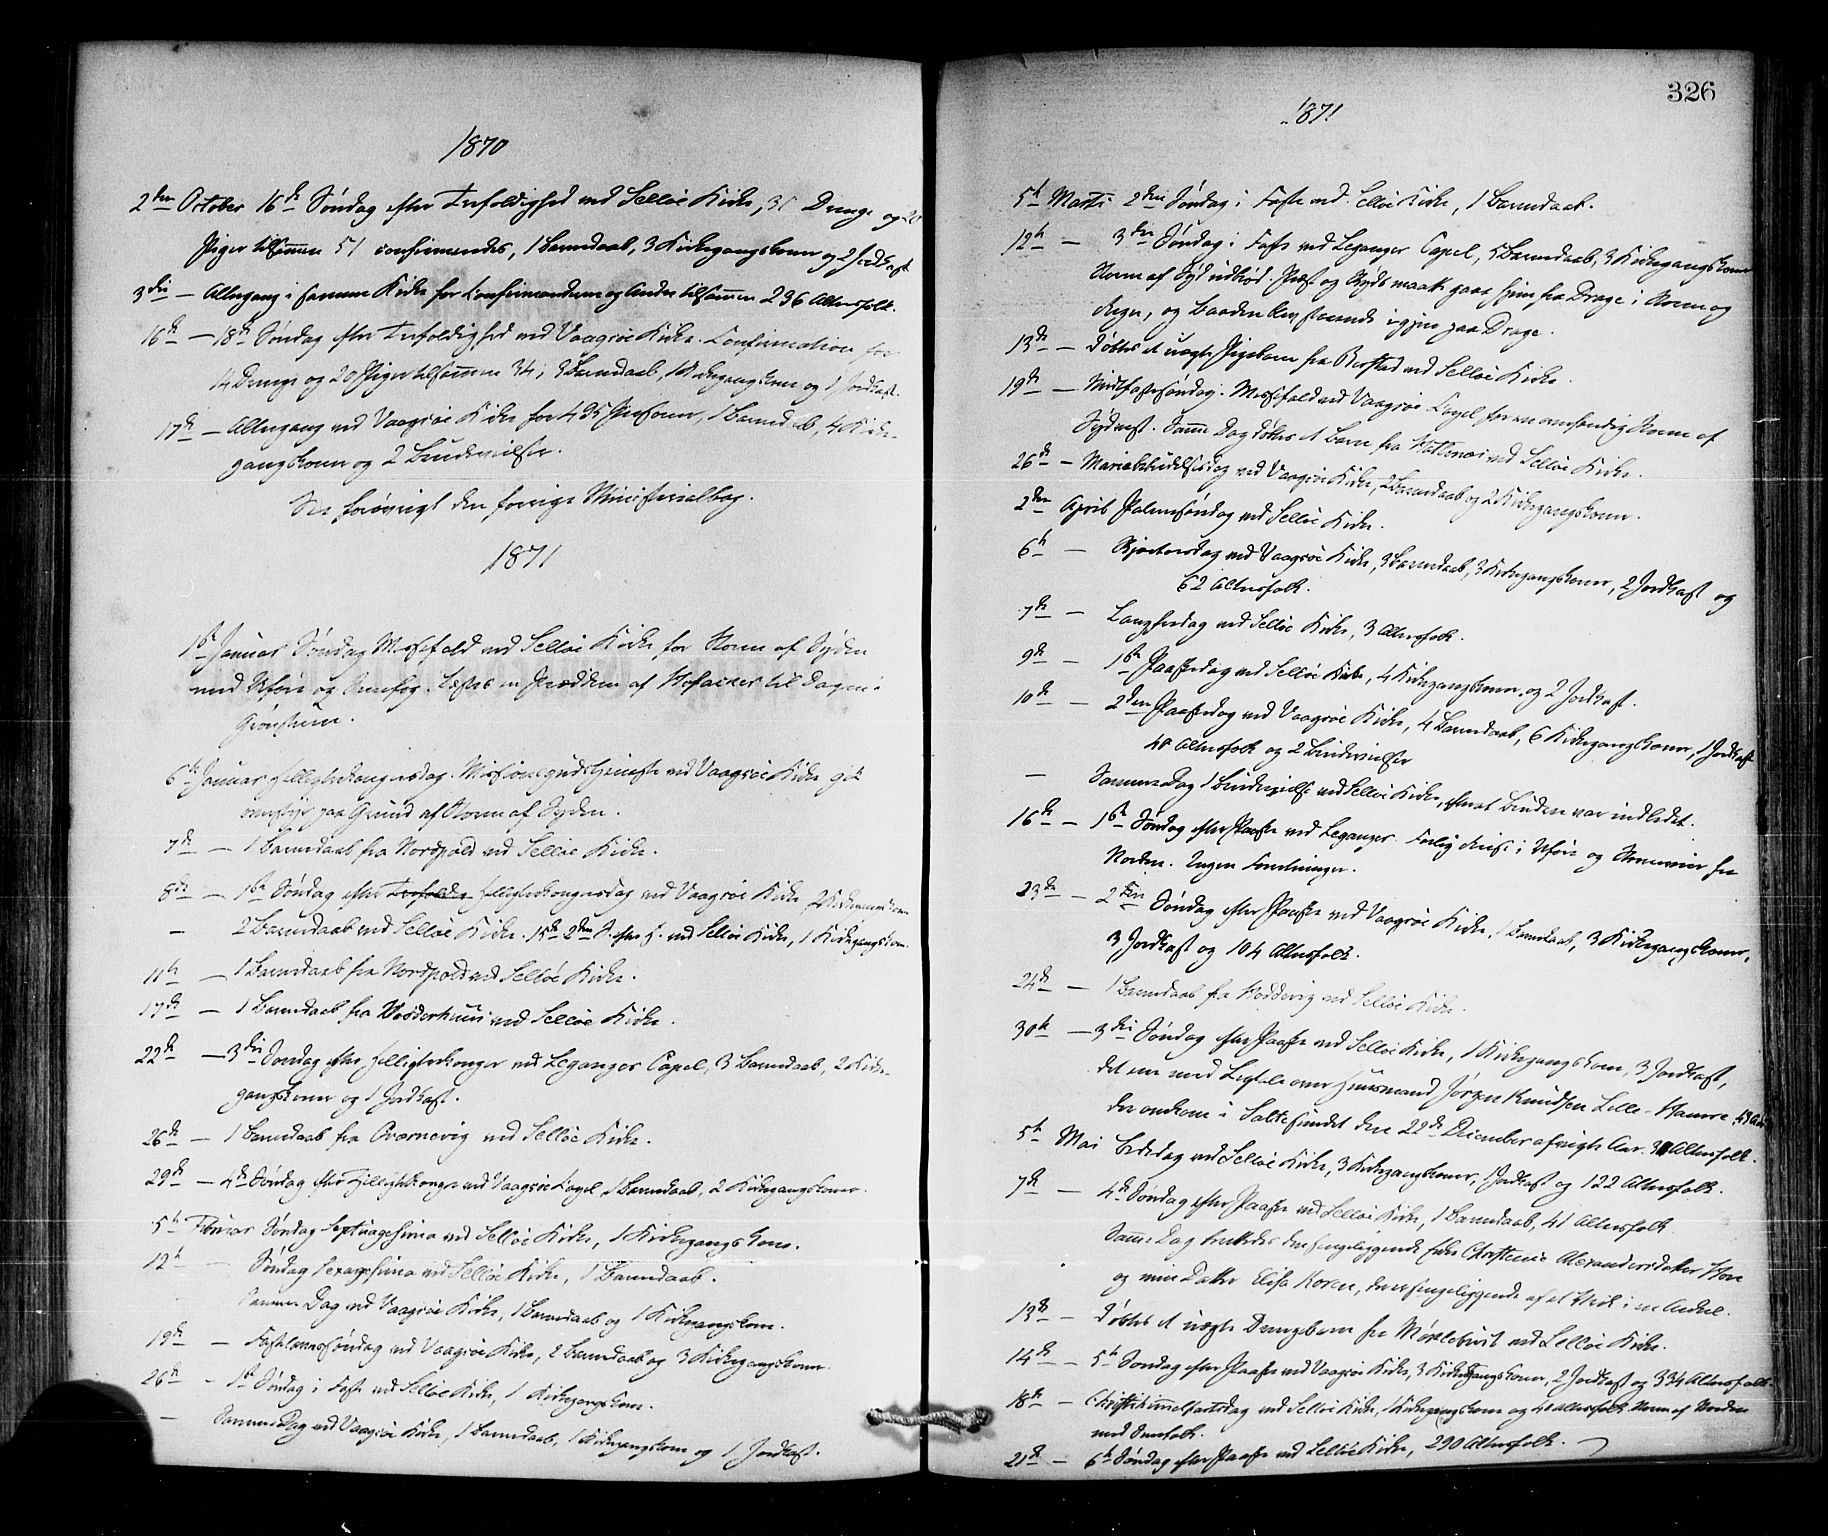 1870
2den October 16de Søndag efter Trefoldighed ved Selløe Kirke, 31 Drenge og 20
Piger tilsammen 51 confirmendes, 1 Barnedaab, 3 Kirkegangskoner og 2 Jordkast
3die — Altergang i samme Kirke for Confirmanderne og Andre tilsammen 236 Altersfolk.
16de — 18de Søndag efter Trefoldighed ved Vaagsøe Kirke. Confirmation for
14 Drenge og 20 Piger tilsammen 34, 3 Barnedaab, 1 Kirkegangskone og 1 Jordkast.
17de — Altergang ved Vaagsøe Kirke for 495 Personer, 1 Barnedaab, 4 Kirke-
gangskoner og 2 Brudevielser.
See forøvrigt den forrige Ministerialbog.
1871
1ste Januar Søndag Messefald ved Selløe Kirke for Storm af Syden
med Uføre og Snefog. Læstes en Prædiken af Hofacker til Dagen i
6te Januar Helligtrekongersdag. Missionsgudstjeneste ved Vaagsøe Kirke gik
overstyr paa Grund af Storm af Syden.
7de — 1 Barnedaab fra Nordpold ved Selløe Kirke.
8de — 1ste Søndag efter Trefoldig Helligtrekongersdag ved Vaagsøe Kirke
— 2 Barnedaab ved Selløe Kirke. 15de 2den S. efter H. ved Selløe Kirke, 1 Kirkegangskone.
11te — 1 Barnedaab fra Nordpold ved Selløe Kirke.
17de — 1 Barnedaab fra Vedderhuus ved Selløe Kirke.
22de — 3die Søndag efter Helligtrekonger ved Leganger Capel, 3 Barnedaab, 2 Kirke-
gangskoner og 1 Jordkast.
26de — 1 Barnedaab fra Qværnevig ved Selløe Kirke.
29de — 4de Søndag efter Helligtrekonger ved Vaagsøe Capel, 1 Barnedaab, 2 Kirkegangskoner.
5te Februar Søndag Septuagesima ved Selløe Kirke, 1 Kirkegangskone.
12te — Søndag Sexagesima ved Selløe Kirke, 1 Barnedaab.
Samme Dag ved Vaagsøe Kirke, 1 Barnedaab og 1 Kirkegangskone.
19de — Fastelavnssøndag ved Vaagsøe Kirke, 2 Barnedaab og 3 Kirkegangskoner.
26de — 1ste Søndag i Faste ved Selløe Kirke, 1 Kirkegangskone.
— Samme Dag ved Vaagsøe Kirke, 1 Barnedaab, 1 Kirkegangskone og 1 Jordkast.
326
1871
5te Marts 2den Søndag i Faste ved Selløe Kirke, 1 Barnedaab.
12te — 3die Søndag i Faste ved Leganger Capel, 5 Barnedaab, 3 Kirkegangskoner
Storm af Syd udbrød. Præst og Skyds maatte gaae hjem fra Drage i Storm og
Regn, og Baaden blev staaende igjen paa Drage.
13de — Døbtes et uægte Pigebarn fra Berstad ved Selløe Kirke.
19de — Midfastesøndag. Messefald ved Vaagsøe Capel formedelst Storm af
Sydvest. Samme Dag døbtes et Barn fra Hattenæs ved Selløe Kirke.
26de — Mariæbebudelsesdag ved Vaagsøe Kirke, 2 Barnedaab og 2 Kirkegangskoner.
2den April Palmesøndag ved Selløe Kirke.
6te — Skjærtorsdag ved Vaagsøe Kirke, 3 Barnedaab, 3 Kirkegangskoner, 2 Jordkast og
62 Altersfolk.
7de — Langfredag ved Selløe Kirke, 3 Altersfolk.
9de — 1ste Paaskedag ved Selløe Kirke, 4 Kirkegangskoner, og 2 Jordkast.
10de — 2den Paaskedag ved Vaagsøe Kirke, 4 Barnedaab, 6 Kirkegangskoner, 1 Jordkast
40 Altersfolk og 2 Brudevielser
— Samme Dag 1 Brudevielse ved Selløe Kirke, efterat Bruden var indledet.
16de — 1ste Søndag efter Paaske ved Leganger. Farlig Reise i Uføre og Sneveir fra
Norden. Ingen Forretninger.
23de — 2den Søndag efter Paaske ved Vaagsøe Kirke, 1 Barnedaab, 3 Kirkegangskoner,
3 Jordkast og 104 Altersfolk.
24de — 1 Barnedaab fra Hoddevig ved Selløe Kirke.
30te — 3die Søndag efter Paaske ved Selløe Kirke, 1 Kirkegangskone, 3 Jordkast,
det ene med Ligtale over Huusmand Jørgen Knudsen Lille-Hamre 43 Aar
der omkom i Saltesundet den 22de December afvigte Aar. 31 Altersfolk.
5te Mai Bededag ved Selløe Kirke, 3 Kirkegangskoner, 1 Jordkast og 122 Altersfolk.
7de — 4de Søndag efter Paaske ved Selløe Kirke, 1 Barnedaab, 41 Altersfolk
Samme Dag berettedes den sengeliggende Enke Christense Alexandersdatter Hove
og min Datter Elisa Koren, der er sengeliggende af et Vrik i en Ankel.
13de — Døbtes et uægte Drengebarn fra Mørkhust ved Selløe Kirke.
14de — 5te Søndag efter Paaske ved Vaagsøe Kirke, 3 Kirkegangskoner, 2 Jordkast og 334 Altersfolk.
18de — Christi himmelfartsdag ved Selløe Kirke, 1 Kirkegangskone og 40 Altersfolk Storm af Norden
med
21de — 6te Søndag efter Paaske ved Selløe Kirke, 290 Altersfolk.